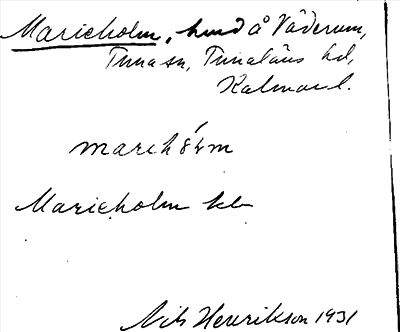 Marieholm, hmd å Väderum,
Tuna sn, Tunaläns hd,
Kalmar l.
Marieholm
Nils Henrikson 1931